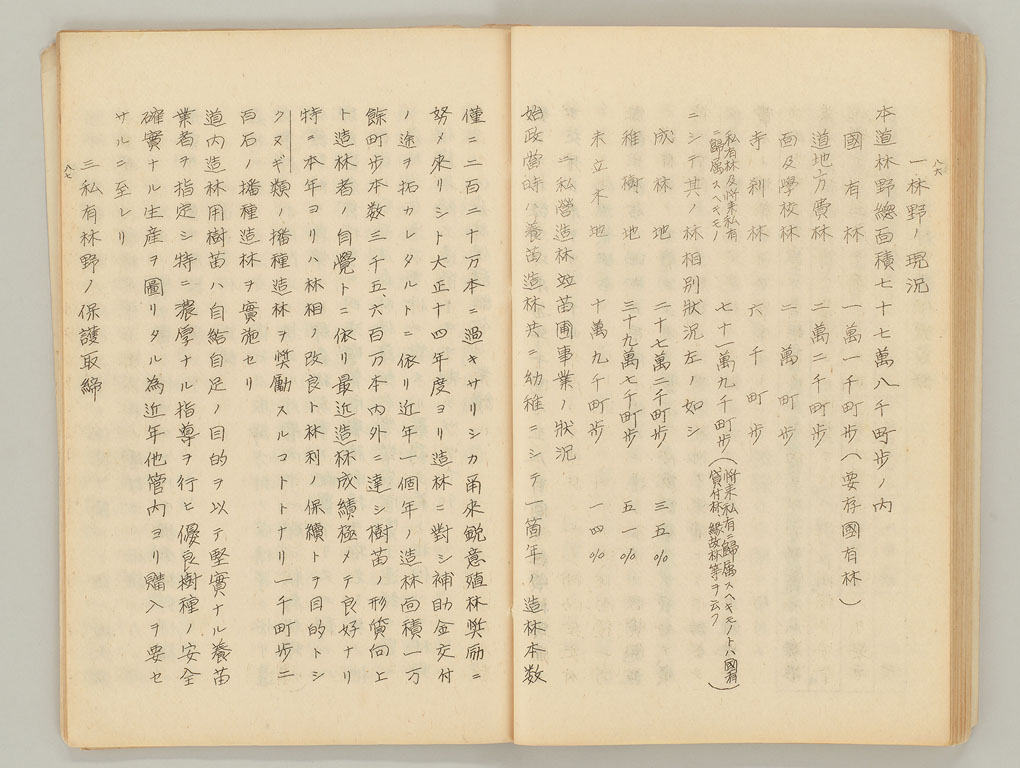 八六
一林野ノ現況
本道林野總面積七十七萬八千町步ノ内
國有林 一萬一千町步(要存國有林)
道地方費林 二萬二千町步
面及學校林 二萬町步
寺刹林 六千町步
私有林及將来私有ニ歸属スヘキモノ 七十一萬九千町步(將来私有ニ歸属スヘキモノトハ國有貸付林、緣故林等ヲ云フ)
ニシテ其ノ林相別狀況左ノ如シ
成林地 二十七萬二千町步 三五%
稚樹地 三十九萬七千町步 五一%
未立木地 十萬九千町步 一四%
二私營造林竝苗圃事業ノ狀況
始政當時ハ養苗造林共ニ幼稚ニシテ一箇年ノ造林本数
僅ニ二百二十万本ニ過キサリシカ甬来鋭意殖林奨励ニ
努メ来リシト大正十四年度ヨリ造林ニ對シ補助金交付
ノ途ヲ拓カレタルトニ依リ近年一個年ノ造林面積一万
餘町步本数三千五、六百万本内外ニ達シ樹苗ノ形質向上
ト造林者ノ自覺トニ依リ最近造林成績極メテ良好ナリ
特ニ本年ヨリハ林相ノ改良ト林利ノ保續トヲ目的トシ
クヌギ類ノ播種造林ヲ奨勵スルコトトナリ一千町步ニ
百石ノ播種造林ヲ實施セリ
道内造林用樹苗ハ自給自足ノ目的ヲ以テ堅實ナル養苗
業者ヲ指定シ特ニ濃厚ナル指導ヲ行ヒ優良樹種ノ安全
確實ナル生産ヲ圖リタル為近年他管内ヨリ購入ヲ要セ
サルニ至レリ
三私有林野ノ保護取締
八七